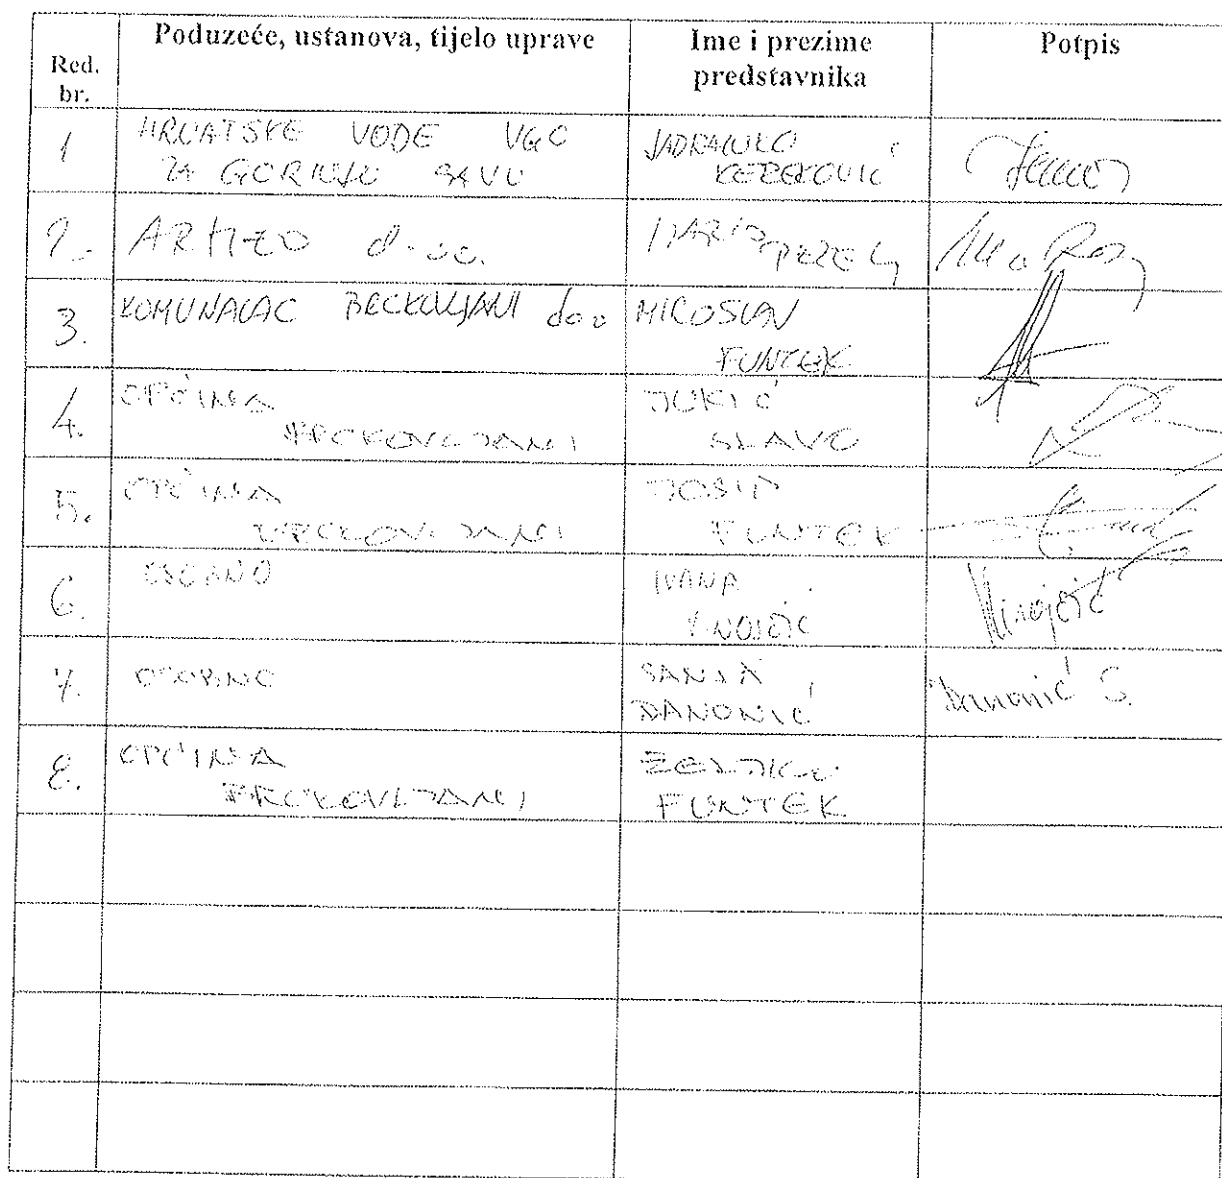 Red.
br.
Poduzeće, ustanova, tijelo uprave
Ime i prezime
predstavnika
Potpis
1
HRVATSKE VODE VGO
ZA GORNJU SAVU
JADRANKO
KEREKOVIĆ
2.
d.o.o.
MARIO
3.
KOMUNALAC BRCKOVLJANI doo
MIROSLAV
FUNTEK
4.
OPĆINA
BRCKOVLJANI
JUKIĆ
SLAVO
5.
OPĆINA
BRCKOVLJANI
JOSIP
FUNTEK
6.
OSOBNO
IVANA
7.
OSOBNO
SANJA
DANONIĆ
Danonić S.
8.
OPĆINA
BRCKOVLJANI
ŽELJKO
FUNTEK